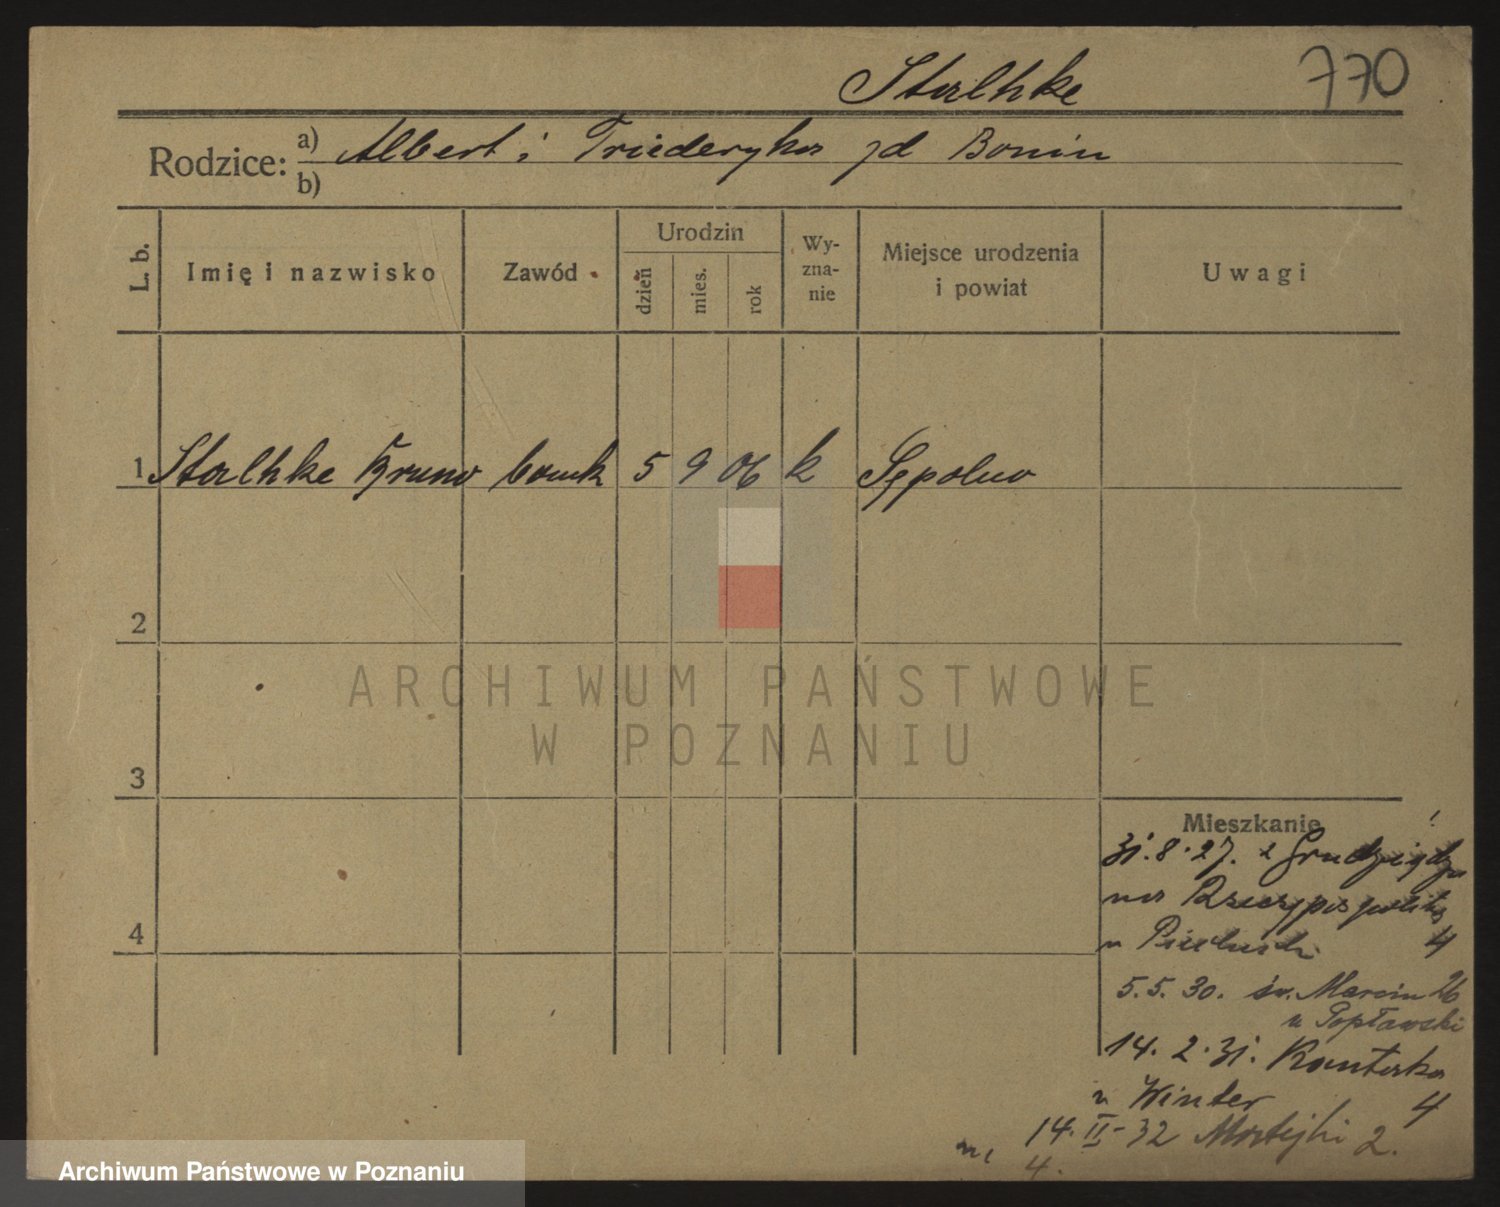 Stahlke
770
Rodzice: a) Albert i Friederyka zd Bonin
b)
L. b.
Imię i nazwisko
Zawód
Urodzin
dzień
mies.
rok
Wy-
zna-
nie
Miejsce urodzenia
i powiat
Uwagi
1 Stahlke Bruno bank 5 9 06 k Sępolno
2
3
4
Mieszkanie
31.8.27. z Grudziądza
na Rzeczypospolitej
u 4
5.5.30. św. Marcin 26
u Popławski
14.2.31. Kantaka
u Winter 4
14.II-32 Matejki 2.
4.
ARCHIWUM PAŃSTWOWE
W POZNANIU
Archiwum Państwowe w Poznaniu